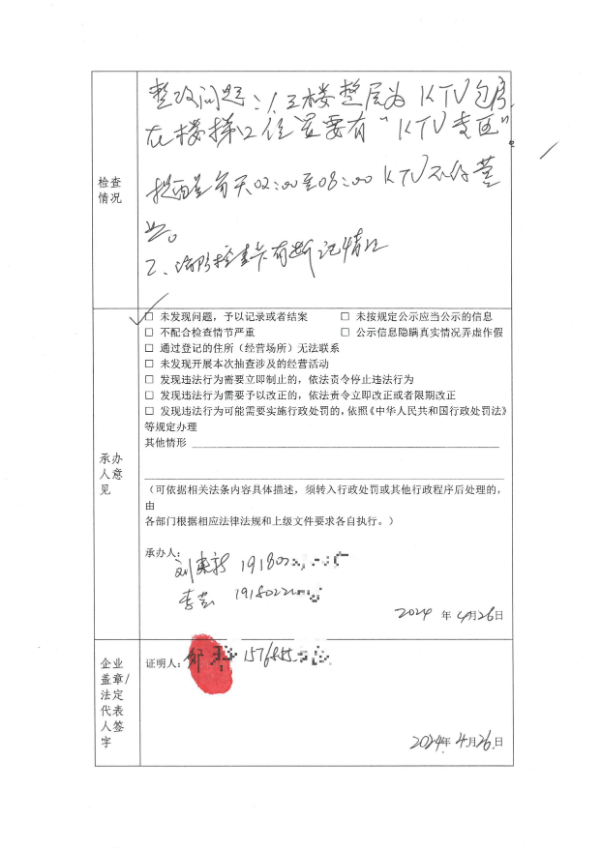 检查
情况
整改问题:1.三楼整层为KTV包房,
在楼梯口位置要有"KTV专区"。
提醒每天02:00至08:00 KTV不得营
业。
2、消防检查卡有断记情况
承办
人意
见
□ 未发现问题,予以记录或者结案 □ 未按规定公示应当公示的信息
□ 不配合检查情节严重 □ 公示信息隐瞒真实情况弄虚作假
□ 通过登记的住所(经营场所)无法联系
□ 未发现开展本次抽查涉及的经营活动
□ 发现违法行为需要立即制止的,依法责令停止违法行为
□ 发现违法行为需要予以改正的,依法责令立即改正或者限期改正
□ 发现违法行为可能需要实施行政处罚的,依照《中华人民共和国行政处罚法》
等规定办理
其他情形
(可依据相关法条内容具体描述,须转入行政处罚或其他行政程序后处理的,
由
各部门根据相应法律法规和上级文件要求各自执行。)
承办人:
191802
1918022
2024 年 4月26日
企业
盖章/
法定
代表
人签
字
证明人: 1576855
2024年 4月26日